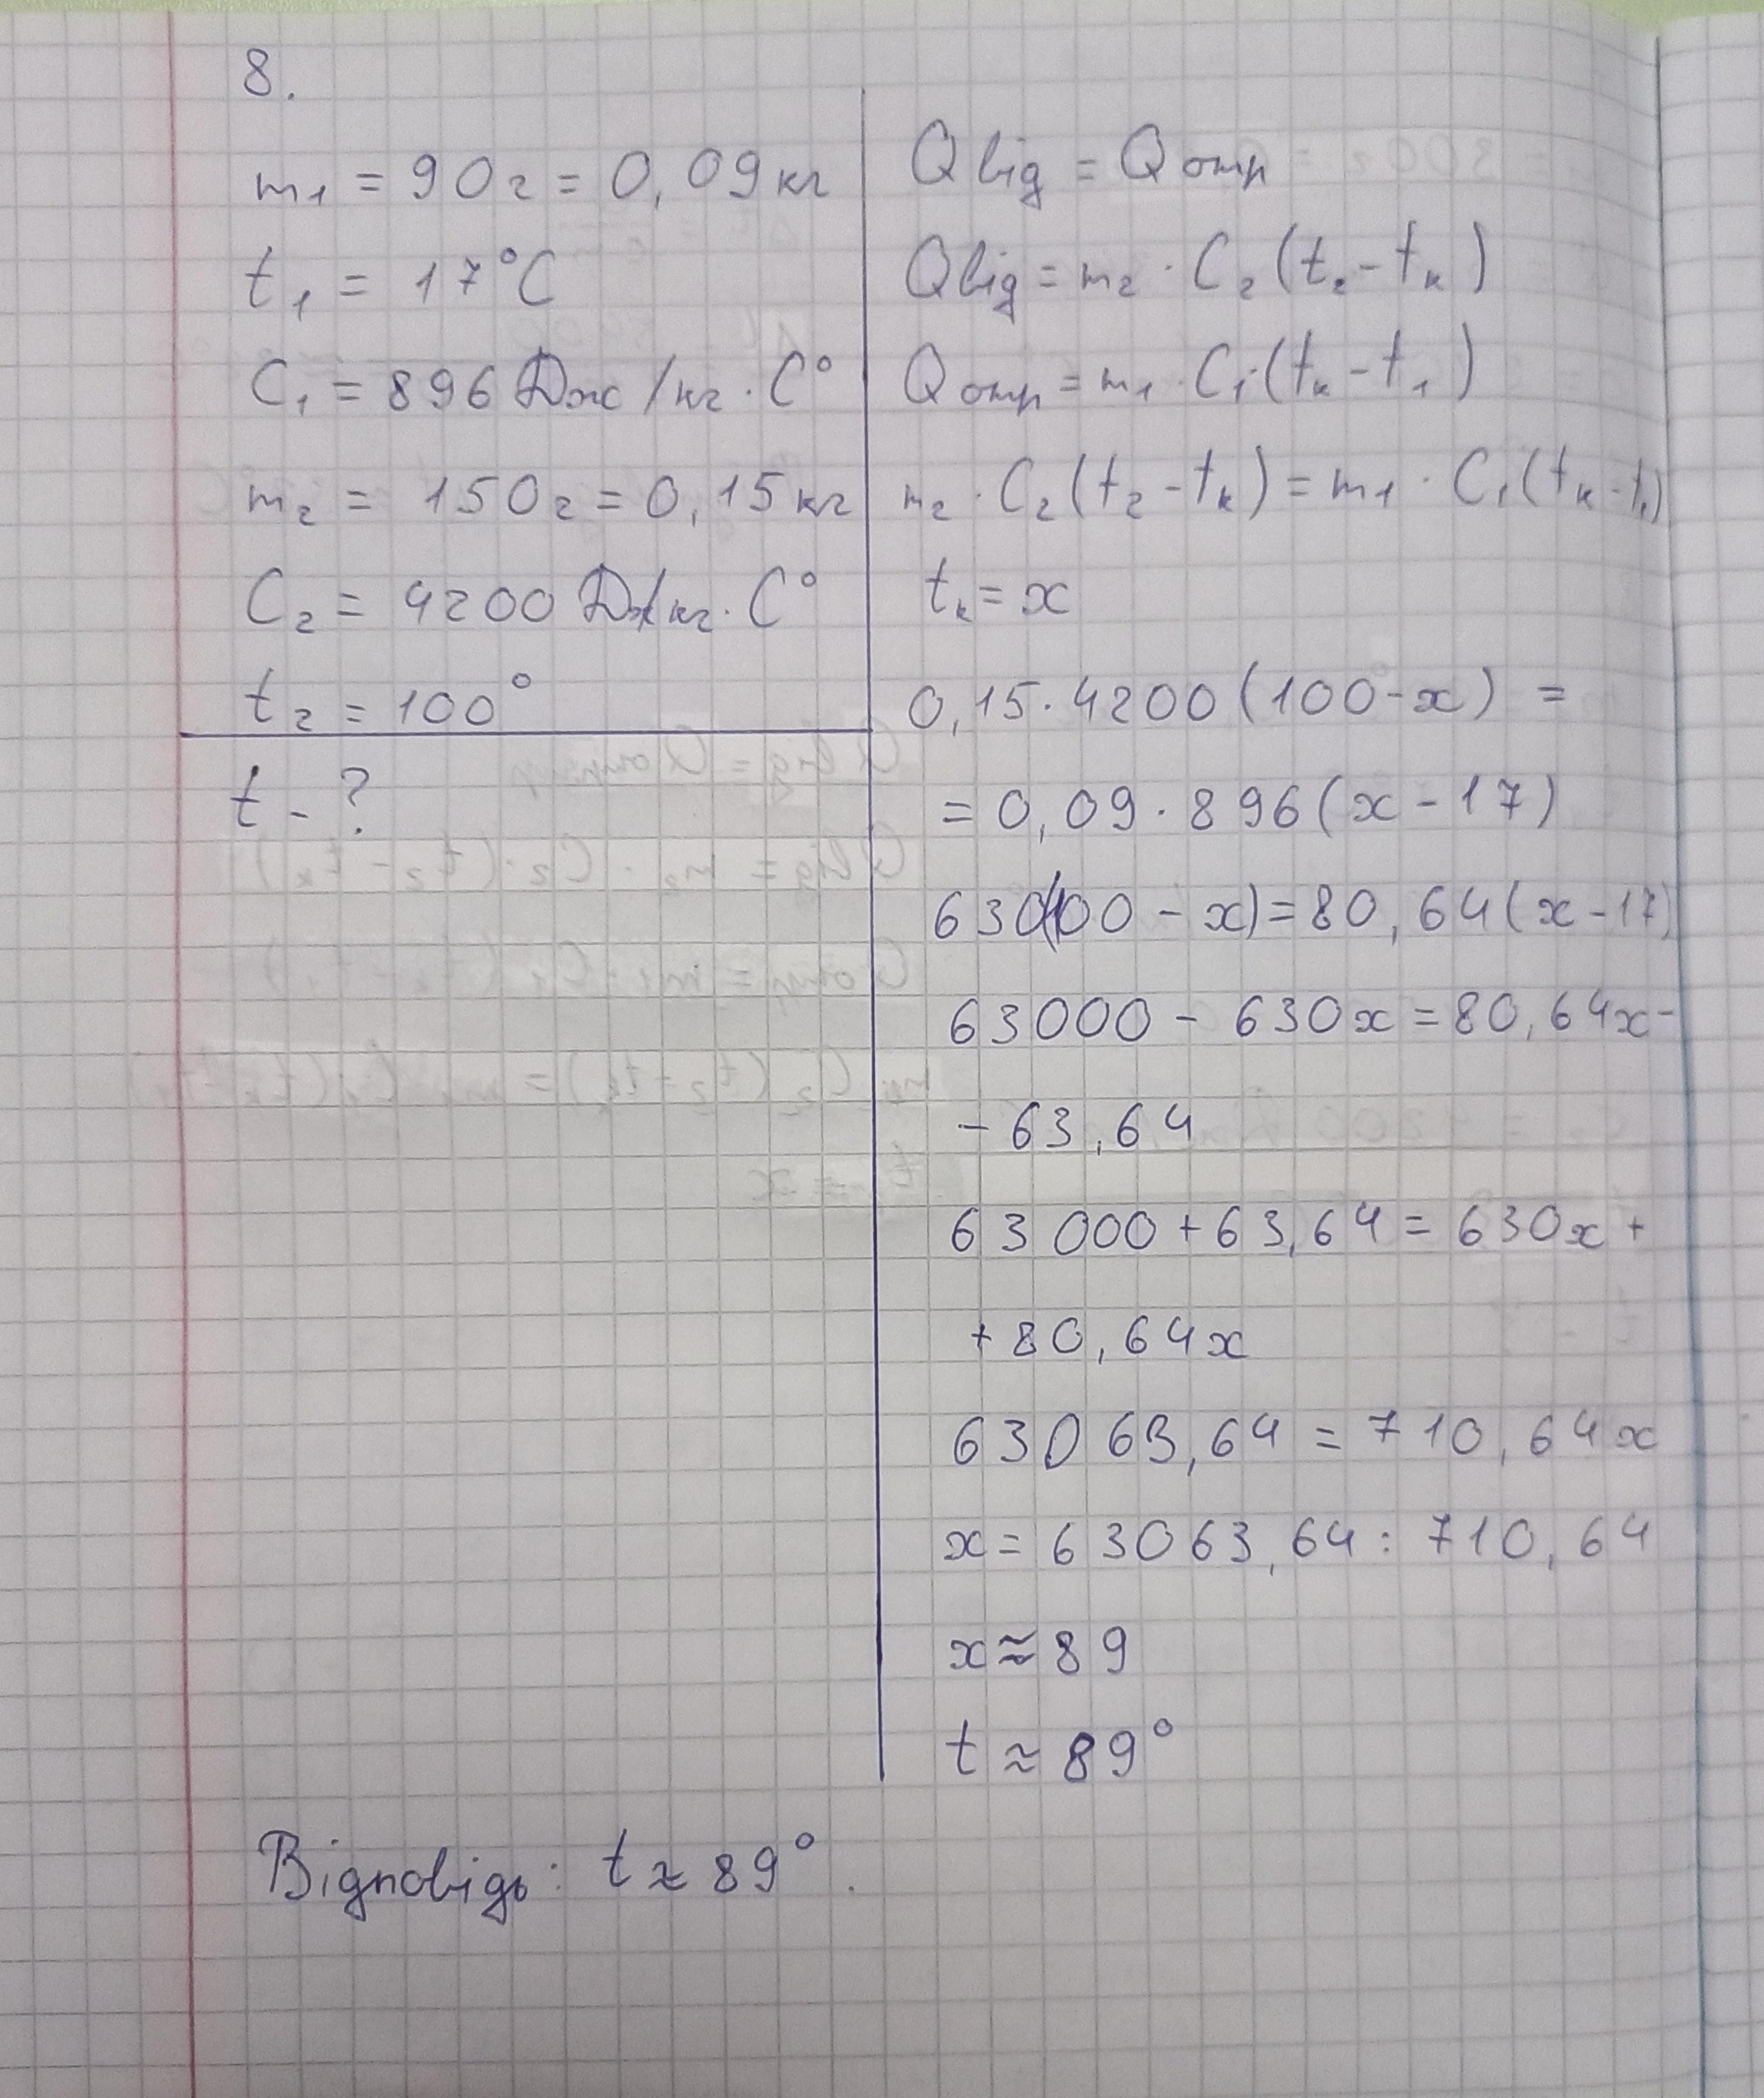 8.
m₁ = 90 г = 0,09 кг
t₁ = 17°C
C₁ = 896 Дж/кг · C°
m₂ = 150 г = 0,15 кг
C₂ = 4200 Дж/кг · C°
t₂ = 100°
t - ?
Qвід = Qотр
Qвід = m₂ · C₂ (t₂ - tк)
Qотр = m₁ · C₁ · (tк - t₁)
m₂ · C₂ (t₂ - tк) = m₁ · C₁ (tк - t₁)
tк = x
0,15 · 4200 (100 - x) =
= 0,09 · 896 (x - 17)
630(100 - x) = 80,64 (x - 17)
63000 - 630x = 80,64x -
- 63,64
63000 + 63,64 = 630x +
+ 80,64x
63063,64 = 710,64x
x = 63063,64 : 710,64
x ≈ 89
t ≈ 89°
Відповідь: t ≈ 89°.